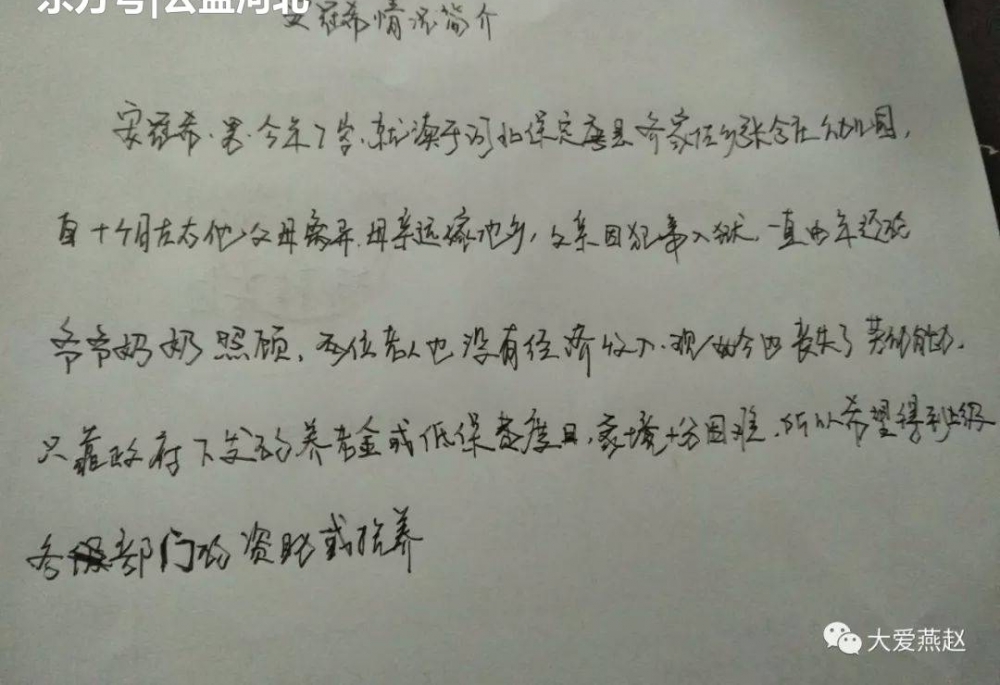 东方号|公益河北
安冠希情况简介
安冠希.男.今年7岁.就读于河北保定唐县齐家佐乡张合庄幼儿园,
自十个月左右他父母离异.母亲远嫁他乡,父亲因犯事入狱.一直由年迈的
爷爷奶奶照顾,两位老人也没有经济收入.现如今也丧失了劳动能力.
只靠政府下发的养老金或低保度日,家境十分困难,所以希望得到上级
各级部门的资助或抬养
大爱燕赵